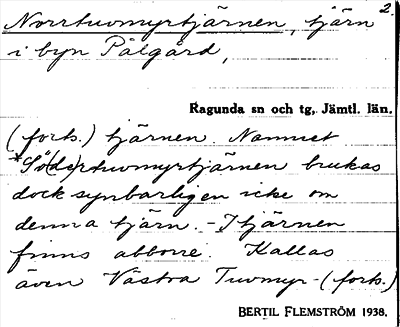 2.
Norrtuvmyrtjärnen, tjärn
i byn Pålgård,
Ragunda sn och tg, Jämtl. län.
(forts.) tjärnen. Namnet
*Sö(de)rtuvmyrtjärnen brukas
dock synbarligen icke om
denna tjärn. - I tjärnen
finns abborre. Kallas
även Västra Tuvmyr- (forts.)
BERTIL FLEMSTRÖM 1938.